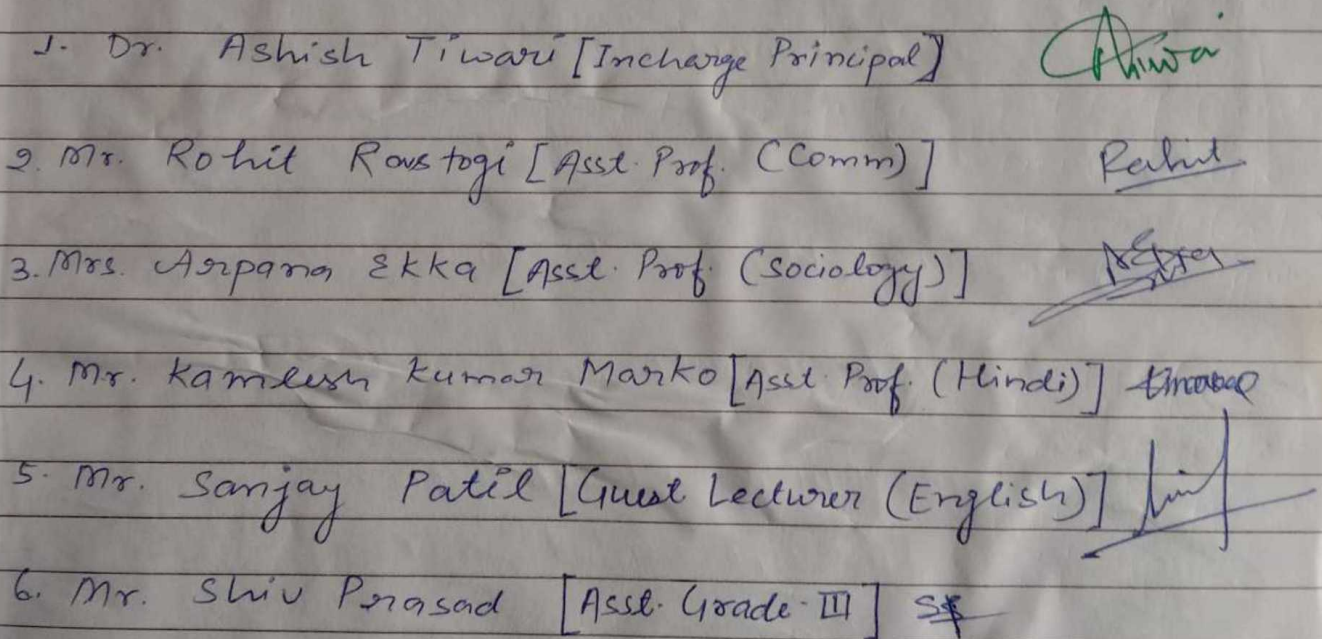 1. Dr. Ashish Tiwari [Incharge Principal]
2. Mr. Rohit Rastogi [Asst. Prof. (Comm)] Rohit
3. Mrs. Arpana Ekka [Asst. Prof. (Sociology)]
4. Mr. Kamlesh Kumar Marko [Asst. Prof. (Hindi)]
5. Mr. Sanjay Patil [Guest Lecturer (English)]
6. Mr. Shiv Prasad [Asst. Grade-III]